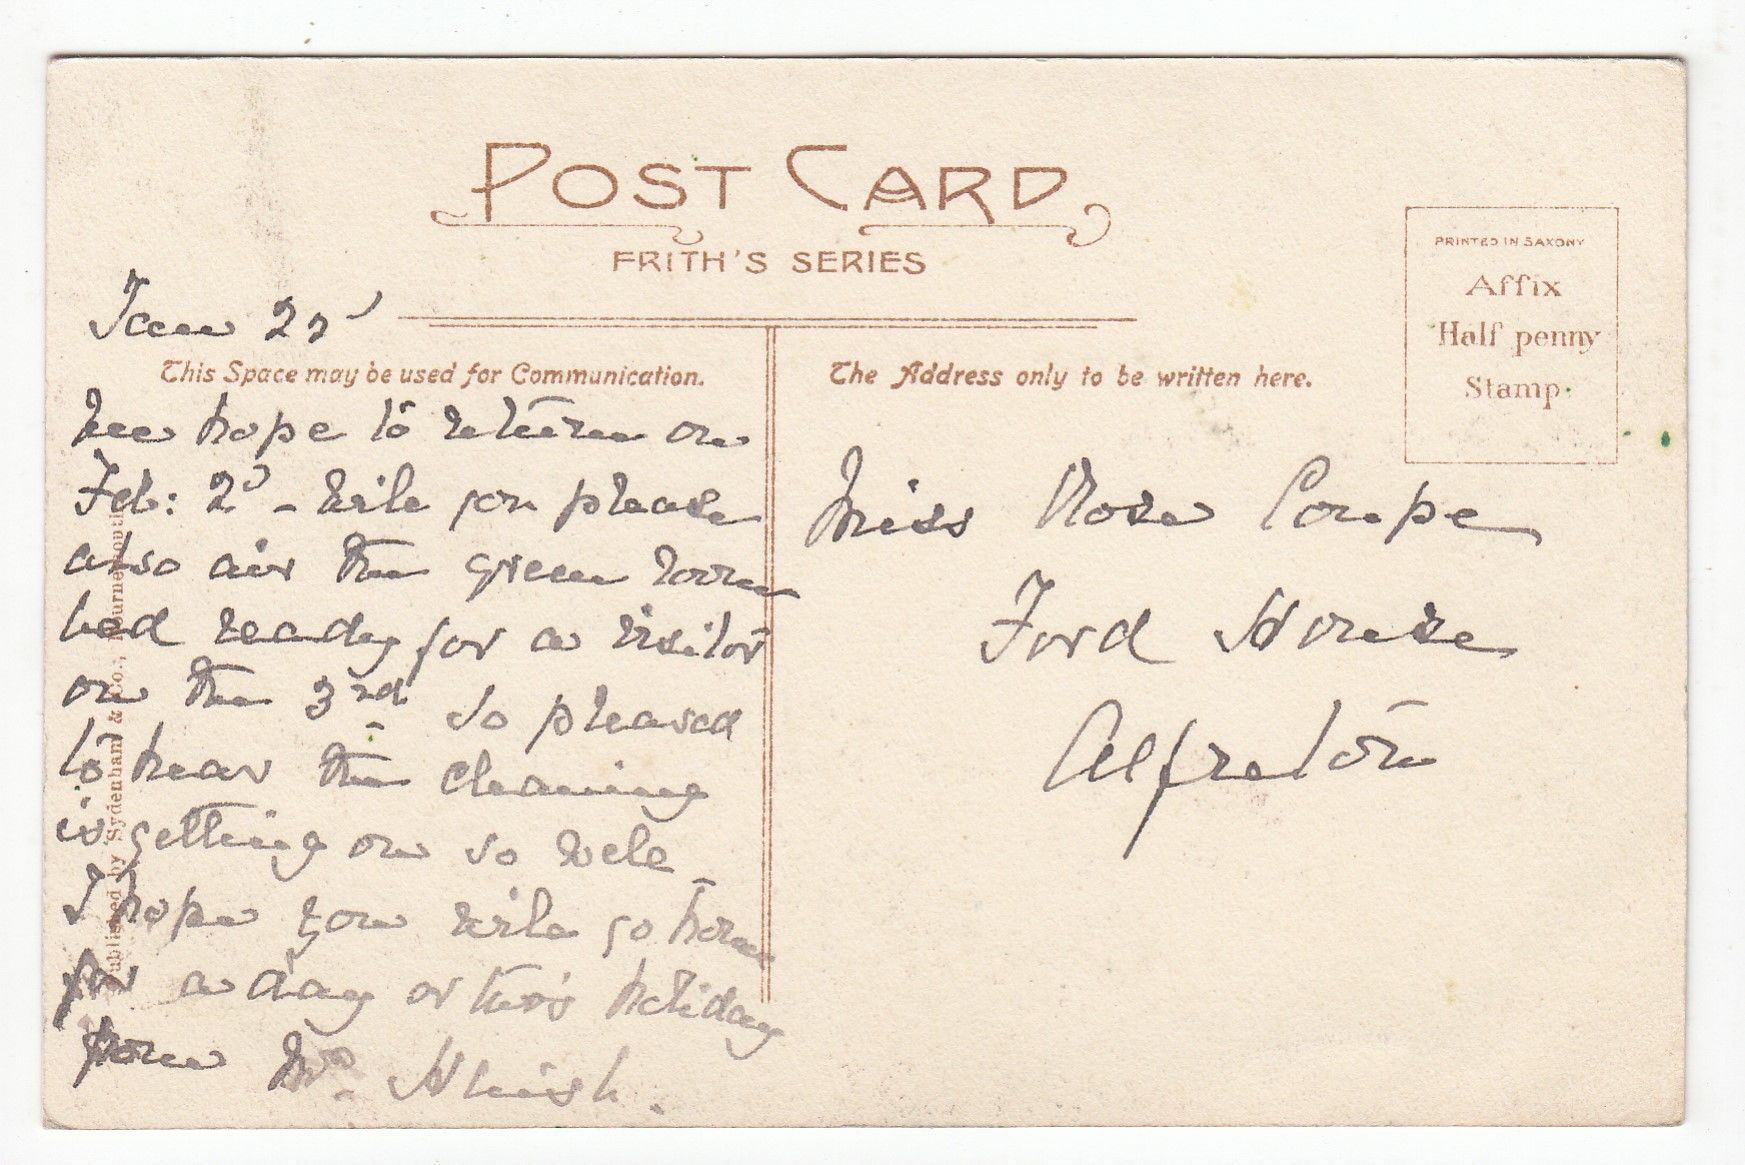 POST CARD
FRITH'S SERIES
PRINTED IN SAXONY
Affix
Half penny
Stamp.
Jan 22
This Space may be used for Communication.
The Address only to be written here.
We hope to return on
Feb: 2 - will you please
also air the green room
bed ready for a visitor
on the 3rd. So pleased
to hear the cleaning
is getting on so well -
I hope you will go home
for a day or two's holiday
from Mrs. Huish.
Miss Rose Coupe
Ford House
Alfreton
Published by Sydenham & Co., Bournemouth